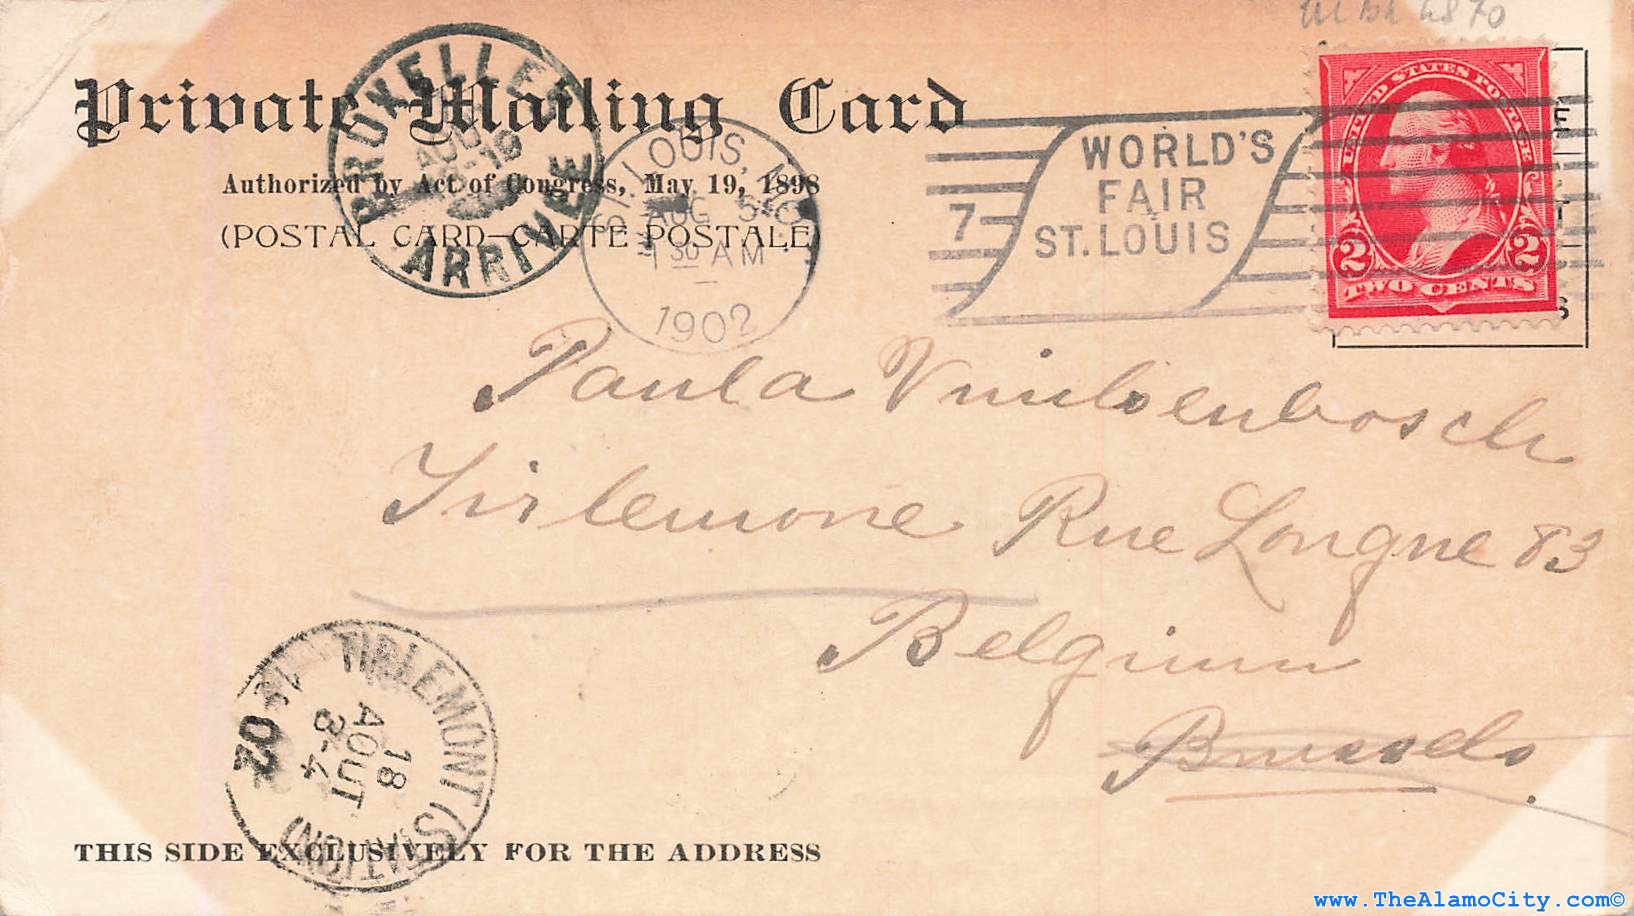 Private Mailing Card
Authorized by Act of Congress, May 19, 1898
(POSTAL CARD—CARTE POSTALE)
BRUXELLES
ARRIVEE
ST. LOUIS, MO.
AUG 5
1 30 AM
1902
7
WORLD'S
FAIR
ST. LOUIS
UNITED STATES POSTAGE
2 2
TWO CENTS
Paula
Tirlemone Rue Longue 83
Belgium
Brussels.
TIRLEMONT (STATION)
18
AOUT
3-4
02
THIS SIDE EXCLUSIVELY FOR THE ADDRESS
www.TheAlamoCity.com©